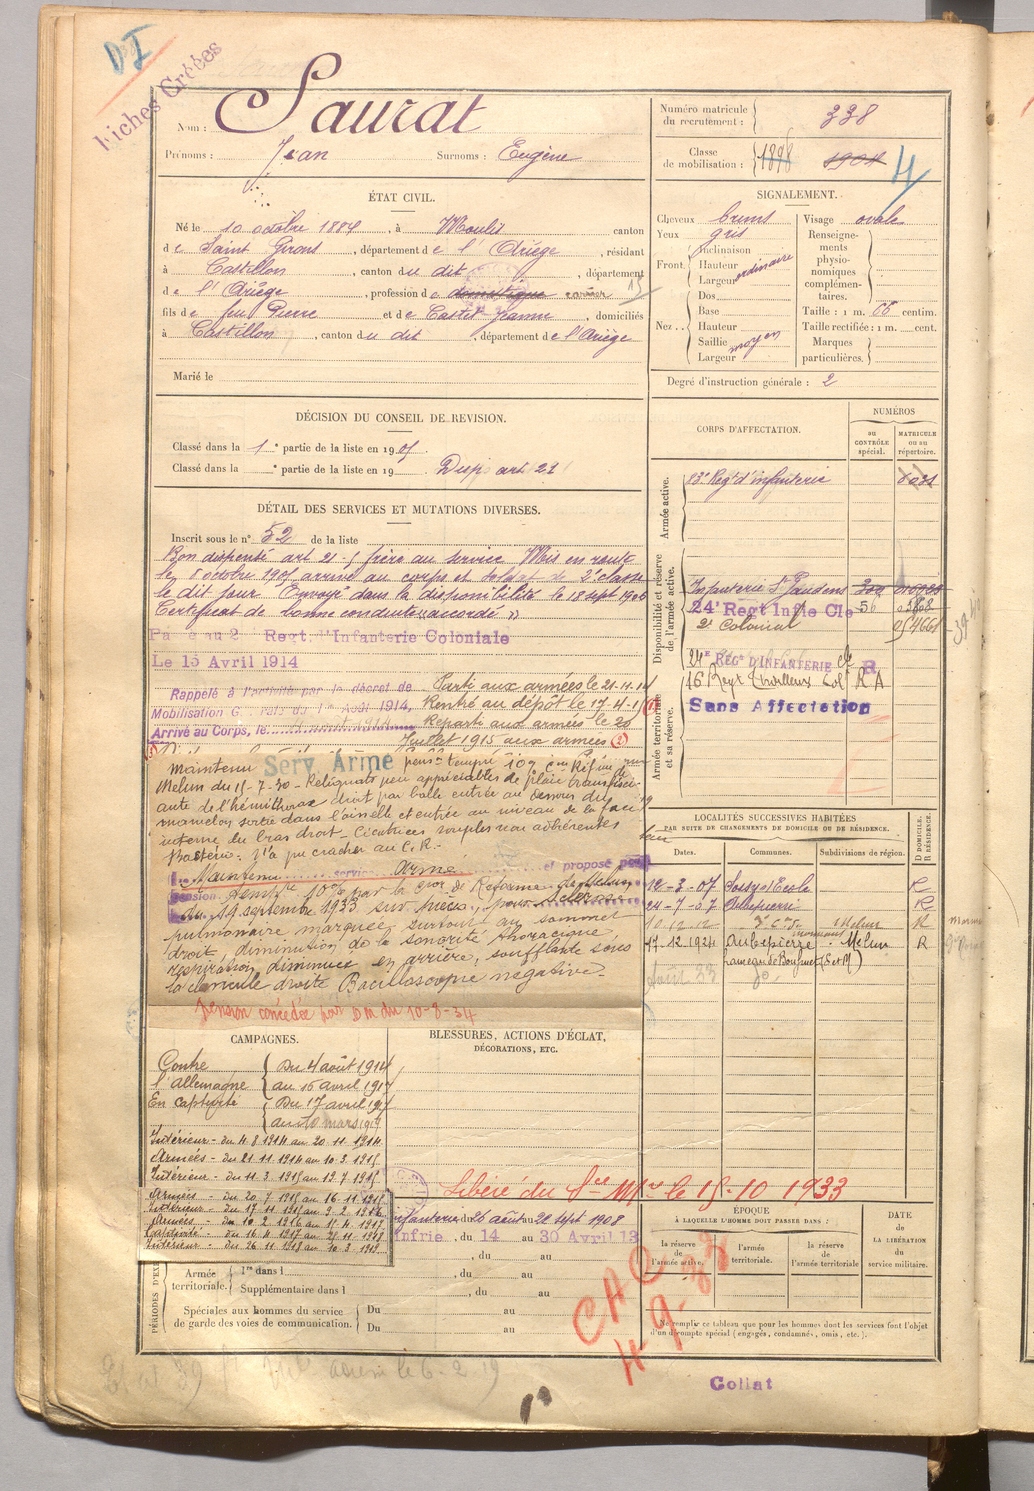 DI
Fiches Créées
Nom : Saurat
Prénoms : Jean Surnoms : Eugène
Numéro matricule du recrutement : 338
Classe de mobilisation : 1898 1904 4
ÉTAT CIVIL.
Né le 10 octobre 1884, à Moulis canton
de Saint Girons, département de l'Ariège, résidant
à Castillon, canton du dit, département
de l'Ariège, profession de domestique carrier 15
fils de feu Pierre et de Castet Jeanne, domiciliés
à Castillon, canton du dit, département de l'Ariège
Marié le
SIGNALEMENT.
Cheveux bruns
Yeux gris
Front. Inclinaison
Hauteur ordinaire
Largeur
Nez.. Dos
Base
Hauteur
Saillie moyen
Largeur
Visage ovale
Renseignements physionomiques complémentaires.
Taille : 1 m. 66 centim.
Taille rectifiée : 1 m. cent.
Marques particulières.
Degré d'instruction générale : 2
DÉCISION DU CONSEIL DE REVISION.
Classé dans la 1e partie de la liste en 1905
Classé dans la e partie de la liste en 19 . Disp. art 21
DÉTAIL DES SERVICES ET MUTATIONS DIVERSES.
Inscrit sous le n° 52 de la liste
Bon dispensé art 21-5 frère au service Mis en route
le 8 octobre 1905 arrivé au corps et soldat de 2e classe
le dit jour Envoyé dans la disponibilité le 18 sept 1906
Certificat de bonne conduite "accordé"
Passé au 2 Regt. d'Infanterie Coloniale
Le 15 Avril 1914
Rappelé à l'activité par le décret de
Mobilisation G rale du 1er Août 1914,
Arrivé au Corps, le 4 août 1914
Parti aux armées le 21-11-14
Rentré au dépôt le 17-4-15 (1)
Reparti aux armées le 20
Juillet 1915 aux armées (2)
Maintenu Serv Armé pens tempre 10% Con Réforme
Melun du 15-7-30 - Reliquats peu appréciables de plaie transfixi-
ante de l'hémithorax droit par balle entrée au dessous du
mamelon sortie dans l'aisselle et entrée au niveau de la face
interne du bras droit - Cicatrices souples non adhérentes
Bactério: n'a pu cracher au C.R.
Maintenu service Armé et proposé pour
pension tempre 10% par la Con de Réforme de Melun
du 19 septembre 1933 sur pièces, pour Sclérose
pulmonaire marquée surtout au sommet
droit, diminution de la sonorité thoracique,
respiration diminuée en arrière, soufflante sous
la clavicule droite Bacilloscopie négative.
pension concédée par DM du 10-8-34
CORPS D'AFFECTATION.
NUMÉROS
au CONTRÔLE spécial.
MATRICULE ou au répertoire.
Armée active.
83e Regt d'infanterie
Disponibilité et réserve de l'armée active.
Infanterie St Gaudens
24e Regt Infie Cle 56
2e Colonial
24e REGt D'INFANTERIE Cle R
16 Regt Tirailleurs Col R A
Armée territoriale et sa réserve.
Sans Affectation
LOCALITÉS SUCCESSIVES HABITÉES
PAR SUITE DE CHANGEMENTS DE DOMICILE OU DE RÉSIDENCE.
Dates. Communes. Subdivisions de région. D DOMICILE. R RÉSIDENCE.
12-3-07 Soisy s/ Ecole R
24-7-07 Aubepierre R
10-12-12 Melun R
17.12.1924 Aubepierre Melun R
CAMPAGNES.
Contre l'allemagne Du 4 août 1914
au 16 avril 1917
En captivité Du 17 avril 1917
au 10 mars 1919
Intérieur - du 4 8 1914 au 20 11 1914
Armées - du 21 11 1914 au 10 3 1915
Intérieur - du 11 3 1915 au 19 7 1915
Armées - du 20 7 1915 au 16 11 1915
Intérieur - du 17 11 1915 au 9 2 1916
Armées - du 10 2 1916 au 15 4 1917
Captivité - du 16 4 1917 au 25 11 1918
Intérieur - du 26 11 1918 au 10 3 1919
BLESSURES, ACTIONS D'ÉCLAT,
DÉCORATIONS, ETC.
Libéré du Sce Mre le 15-10 1933
PÉRIODES D'EX
infanterie du 26 août au 20 sept 1908
Infrie, du 14 au 30 Avril 13
, du au
Armée territoriale. 1re dans l , du au
Supplémentaire dans l , du au
Spéciales aux hommes du service de garde des voies de communication. Du au
Du au
ÉPOQUE
À LAQUELLE L'HOMME DOIT PASSER DANS :
la réserve de l'armée active.
l'armée territoriale.
la réserve de l'armée territoriale
DATE DE LA LIBÉRATION du service militaire.
Ne remplir ce tableau que pour les hommes dont les services font l'objet d'un décompte spécial (engagés, condamnés, omis, etc.).
CAC
Coliat